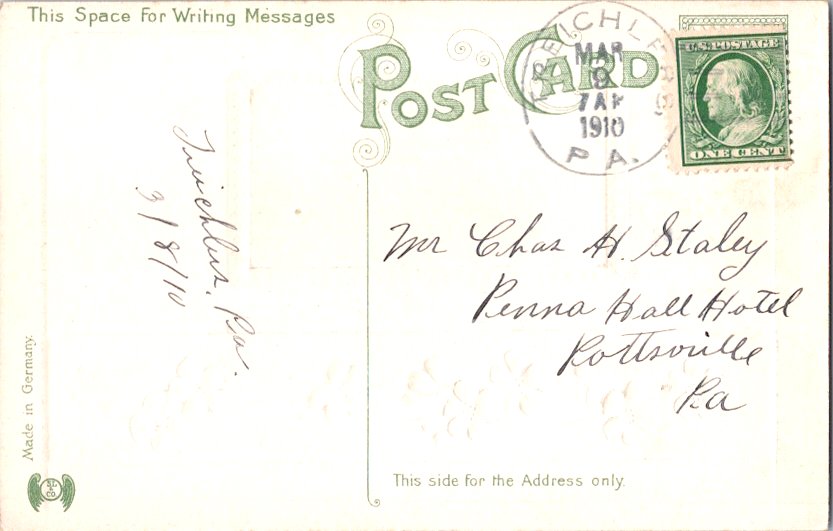 This Space For Writing Messages
POST CARD
TREICHLERS
MAR
9
7 AM
1910
PA.
U.S. POSTAGE
ONE CENT
Treichlers, Pa.
3/8/10
Mr Chas H. Staley
Penna Hall Hotel
Pottsville
Pa
Made in Germany.
SL
& CO
This side for the Address only.